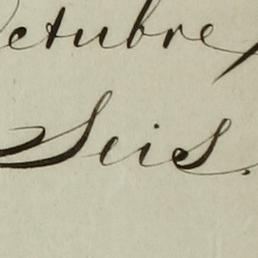 Octubre
Seis.